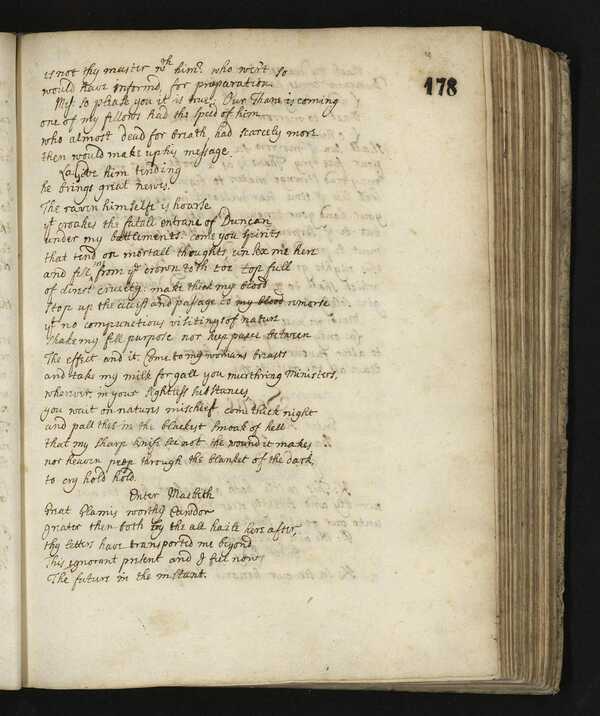 178
is not thy master wth him? who wer't so
would have informd, for preparation
Mes. so please you it is true: Our Thane is coming
one of my fellows had the speed of him
who almost dead for breath had scarcely more
then would make up his message.
La. Give him tending
he brings great newes.
The raven himselfe is hoarse
yt croakes the fatall entrance of Duncan
under my battlements. come you spirits
that tend on mortall thoughts, unsex me here
and fill me from ye crown to th toe top full
of direst cruelty: make thick my blood
stop up the access and passage to my blood remorse
yt no compunctious visitings of nature
shake my fell purpose nor keep peace between
The effect and it. Come to my womans breasts
and take my milk for gall you murthring Ministers,
wherever, in your sightless substances,
you wait on naturs mischief come thick night
and pall thee in the blackest smoak of hell
that my sharp knife see not the wound it makes
nor heaven peep through the blanket of the dark,
to cry hold hold.
Enter Macbeth
Great Glamis worthy Cawdor
greater then both by the all haile hereafter,
thy letters have transported me beyond
This ignorant present and I feel now
The future in the instant.